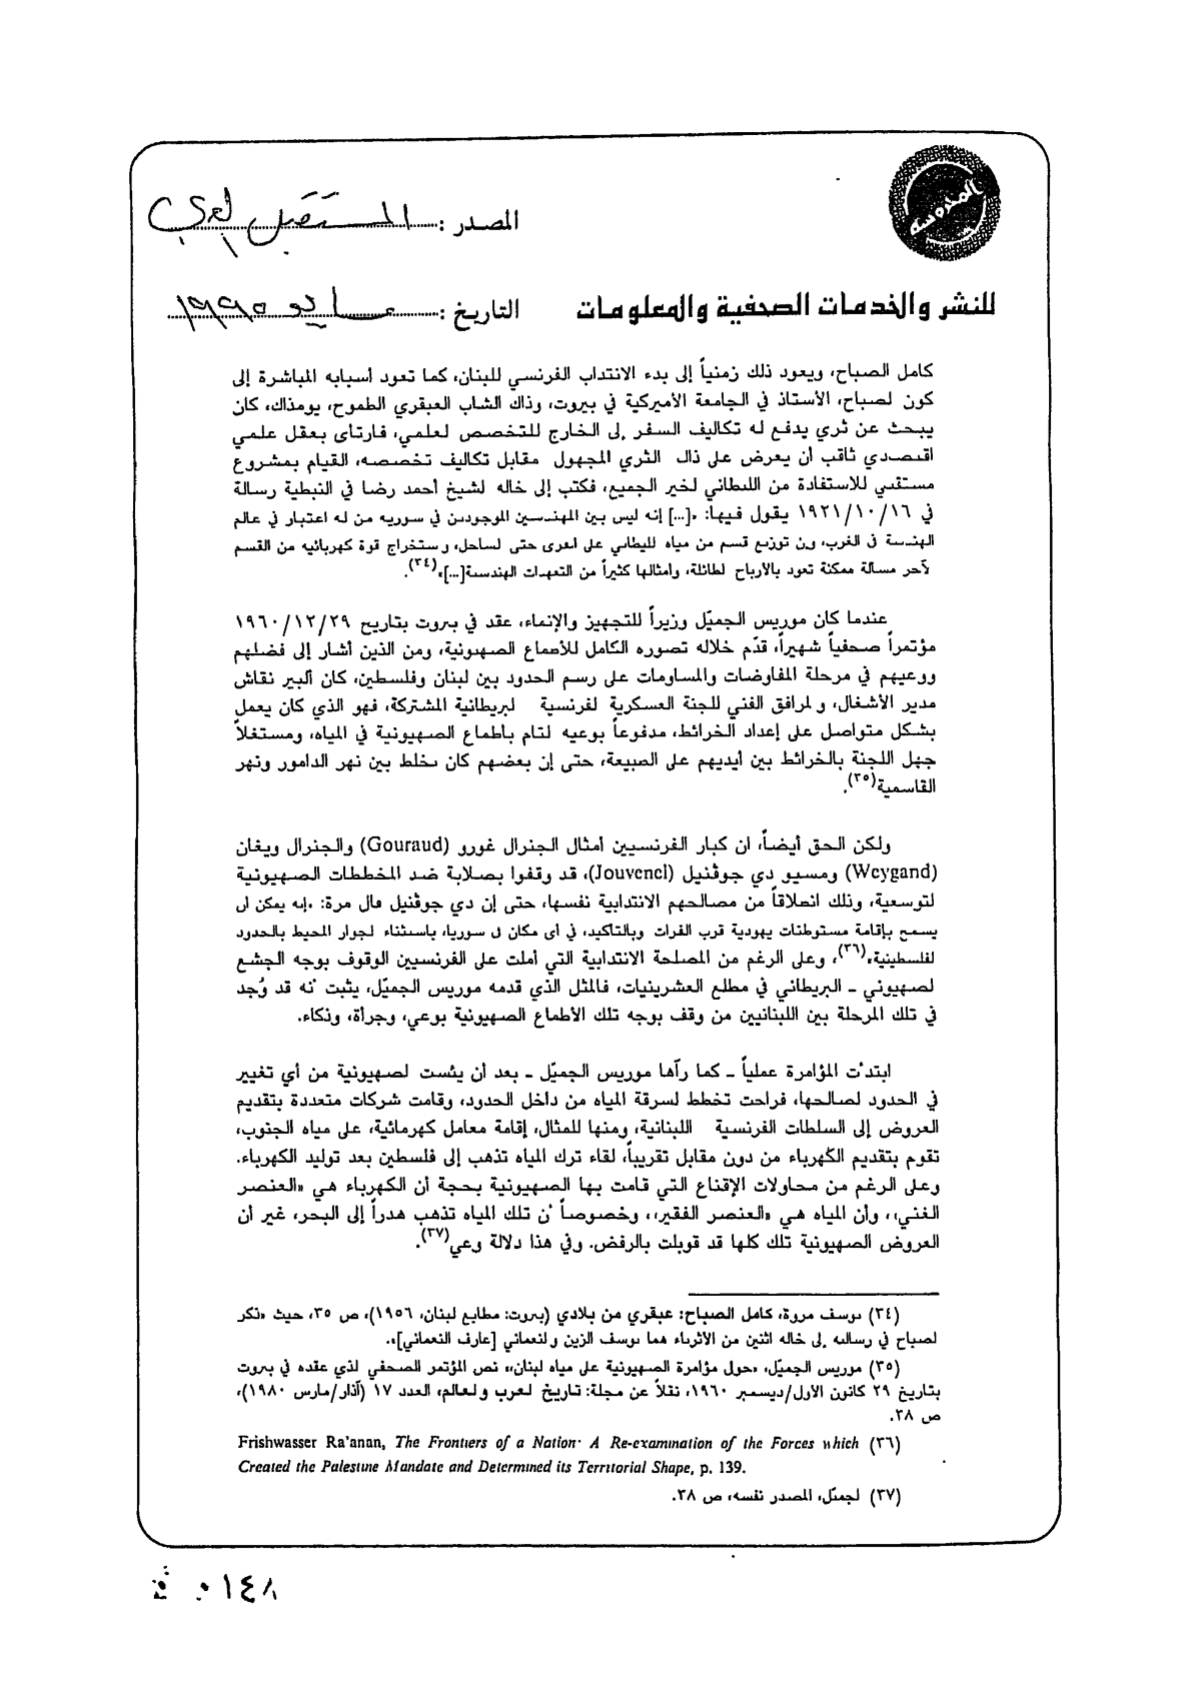 المصدر : المستقبل العربي
للنشر والخدمات الصحفية والمعلومات
التاريخ : مايو ١٩٩٥
كامل الصباح، ويعود ذلك زمنياً إلى بدء الانتداب الفرنسي للبنان، كما تعود أسبابه المباشرة إلى
كون لصباح، الأستاذ في الجامعة الأميركية في بيروت، وذاك الشاب العبقري الطموح، يومذاك، كان
يبحث عن ثري يدفع له تكاليف السفر إلى الخارج للتخصص لعلمي، فارتأى بعقل علمي
اقتصدي ثاقب أن يعرض على ذاك الثري المجهول مقابل تكاليف تخصصه، القيام بمشروع
مستقبي للاستفادة من الليطاني لخير الجميع، فكتب إلى خاله لشيخ أحمد رضا في النبطية رسالة
في ١٦/١٠/١٩٢١ يقول فيها: «[...] إنه ليس بين المهندسين الموجودين في سوريه من له اعتبار في عالم
الهندسة في الغرب، ون توزيع قسم من مياه لليطاني على لقرى حتى لساحل، وستخراج قوة كهربائيه من القسم
لآخر مسالة ممكنة تعود بالأرباح لطائلة، وامثالها كثيراً من التعهدات الهندسة[...]»(٣٤).
عندما كان موريس الجميّل وزيراً للتجهيز والإنماء، عقد في بيروت بتاريخ ٢٩/١٢/١٩٦٠
مؤتمراً صحفياً شهيراً، قدّم خلاله تصوره الكامل للأطماع الصهيونية، ومن الذين أشار إلى فضلهم
ووعيهم في مرحلة المفاوضات والمساومات على رسم الحدود بين لبنان وفلسطين، كان ألبير نقاش
مدير الأشغال، ولمرافق الفني للجنة العسكرية لفرنسية لبريطانية المشتركة، فهو الذي كان يعمل
بشكل متواصل على إعداد الخرائط، مدفوعاً بوعيه لتام بأطماع الصهيونية في المياه، ومستغلاً
جهل اللجنة بالخرائط بين أيديهم على الصبيعة، حتى إن بعضهم كان يخلط بين نهر الدامور ونهر
القاسمية(٣٥).
ولكن الحق أيضاً، ان كبار الفرنسيين أمثال الجنرال غورو (Gouraud) والجنرال ويغان
(Weygand) ومسيو دي جوڤنيل (Jouvenel)، قد وقفوا بصلابة ضد المخططات الصهيونية
لتوسعية، وذلك انطلاقاً من مصالحهم الانتدابية نفسها، حتى إن دي جوڤنيل قال مرة: «إنه يمكن أن
يسمح بإقامة مستوطنات يهودية قرب الفرات وبالتاكيد، في أى مكان ل سوريا، باستثناء لجوار المحيط بالحدود
لفلسطينية»(٣٦)، وعلى الرغم من المصلحة الانتدابية التي أملت على الفرنسيين الوقوف بوجه الجشع
لصهيوني ــ البريطاني في مطلع العشرينيات، فالمثل الذي قدمه موريس الجميّل، يثبت نه قد وُجد
في تلك المرحلة بين اللبنانيين من وقف بوجه تلك الأطماع الصهيونية بوعي، وجرأة، وذكاء.
ابتدأت المؤامرة عملياً ــ كما رآها موريس الجميّل ــ بعد أن يئست لصهيونية من أي تغيير
في الحدود لصالحها، فراحت تخطط لسرقة المياه من داخل الحدود، وقامت شركات متعددة بتقديم
العروض إلى السلطات الفرنسية اللبنانية، ومنها للمثال، إقامة معامل كهرمائية، على مياه الجنوب،
تقوم بتقديم الكهرباء من دون مقابل تقريباً، لقاء ترك المياه تذهب إلى فلسطين بعد توليد الكهرباء.
وعلى الرغم من محاولات الإقناع التي قامت بها الصهيونية بحجة أن الكهرباء هي «العنصر
الغني»، وأن المياه هي «العنصر الفقير»، وخصوصاً ن تلك المياه تذهب هدراً إلى البحر، غير أن
العروض الصهيونية تلك كلها قد قوبلت بالرفض. وفي هذا دلالة وعي(٣٧).
(٣٤) يوسف مروة، كامل الصباح: عبقري من بلادي (بيروت: مطابع لبنان، ١٩٥٦)، ص ٣٥، حيث «ذكر
لصباح في رسالته إلى خاله اثنين من الأثرياء هما يوسف الزين ولنعماني [عارف النعماني]».
(٣٥) موريس الجميّل، «حول مؤامرة الصهيونية على مياه لبنان،» نص المؤتمر الصحفي لذي عقده في بيروت
بتاريخ ٢٩ كانون الأول/ديسمبر ١٩٦٠، نقلاً عن مجلة: تاريخ لعرب ولعالم، العدد ١٧ (آذار/مارس ١٩٨٠)،
ص ٣٨.
(٣٦) Frishwasser Ra'anan, The Frontiers of a Nation: A Re-examination of the Forces which
Created the Palestine Mandate and Determined its Territorial Shape, p. 139.
(٣٧) لجميّل، المصدر نفسه، ص ٣٨.